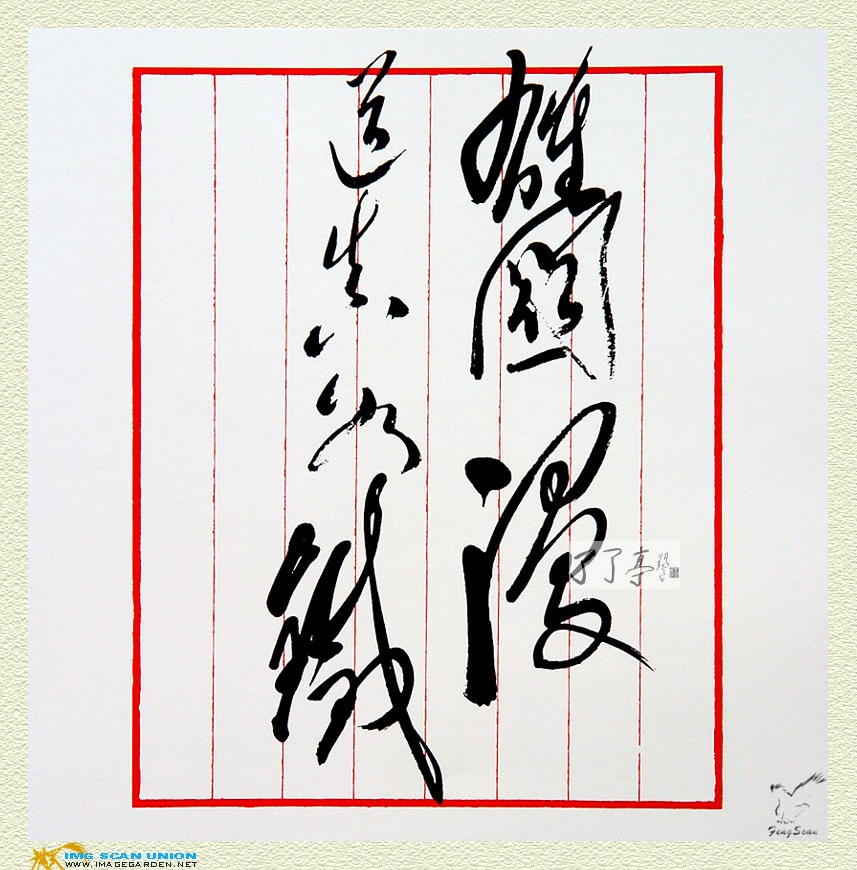 雄關漫
道真如鐵
FengScan
IMG SCAN UNION
WWW.IMAGEGARDEN.NET